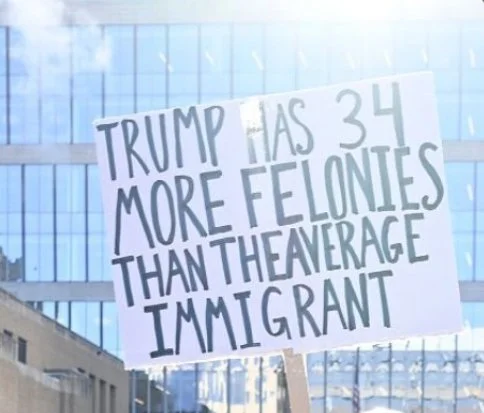 TRUMP HAS 34
MORE FELONIES
THAN THE AVERAGE
IMMIGRANT